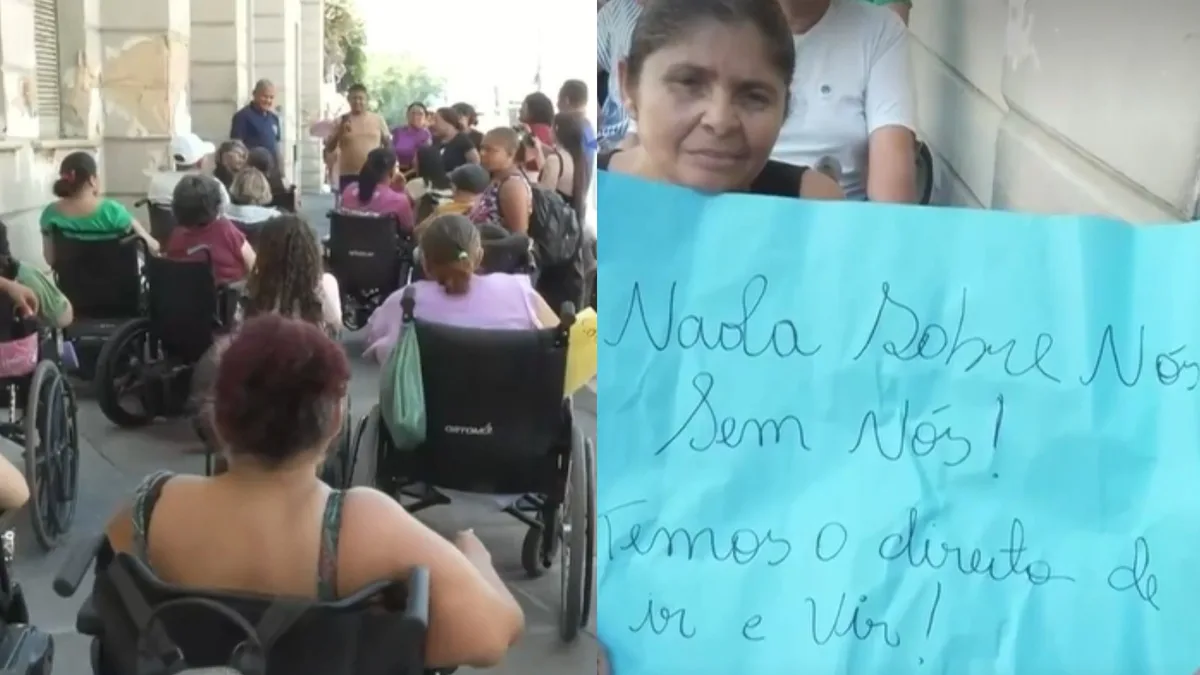 Nada Sobre Nós
Sem Nós!
Temos o direito de
ir e Vir!